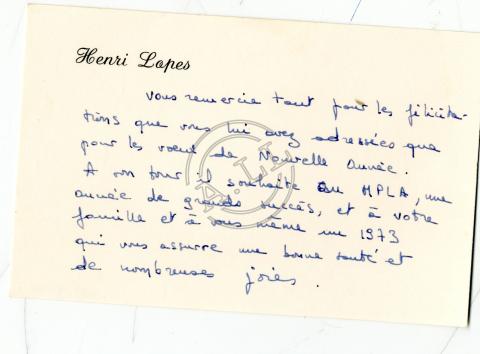 Henri Lopes
vous remercie tant pour les félicita-
tions que vous lui avez adressées que
pour les voeux de Nouvelle Année.
A son tour il souhaite au MPLA, une
année de grands succès, et à votre
famille et à vous même une 1973
qui vous assure une bonne santé et
de nombreuses joies.